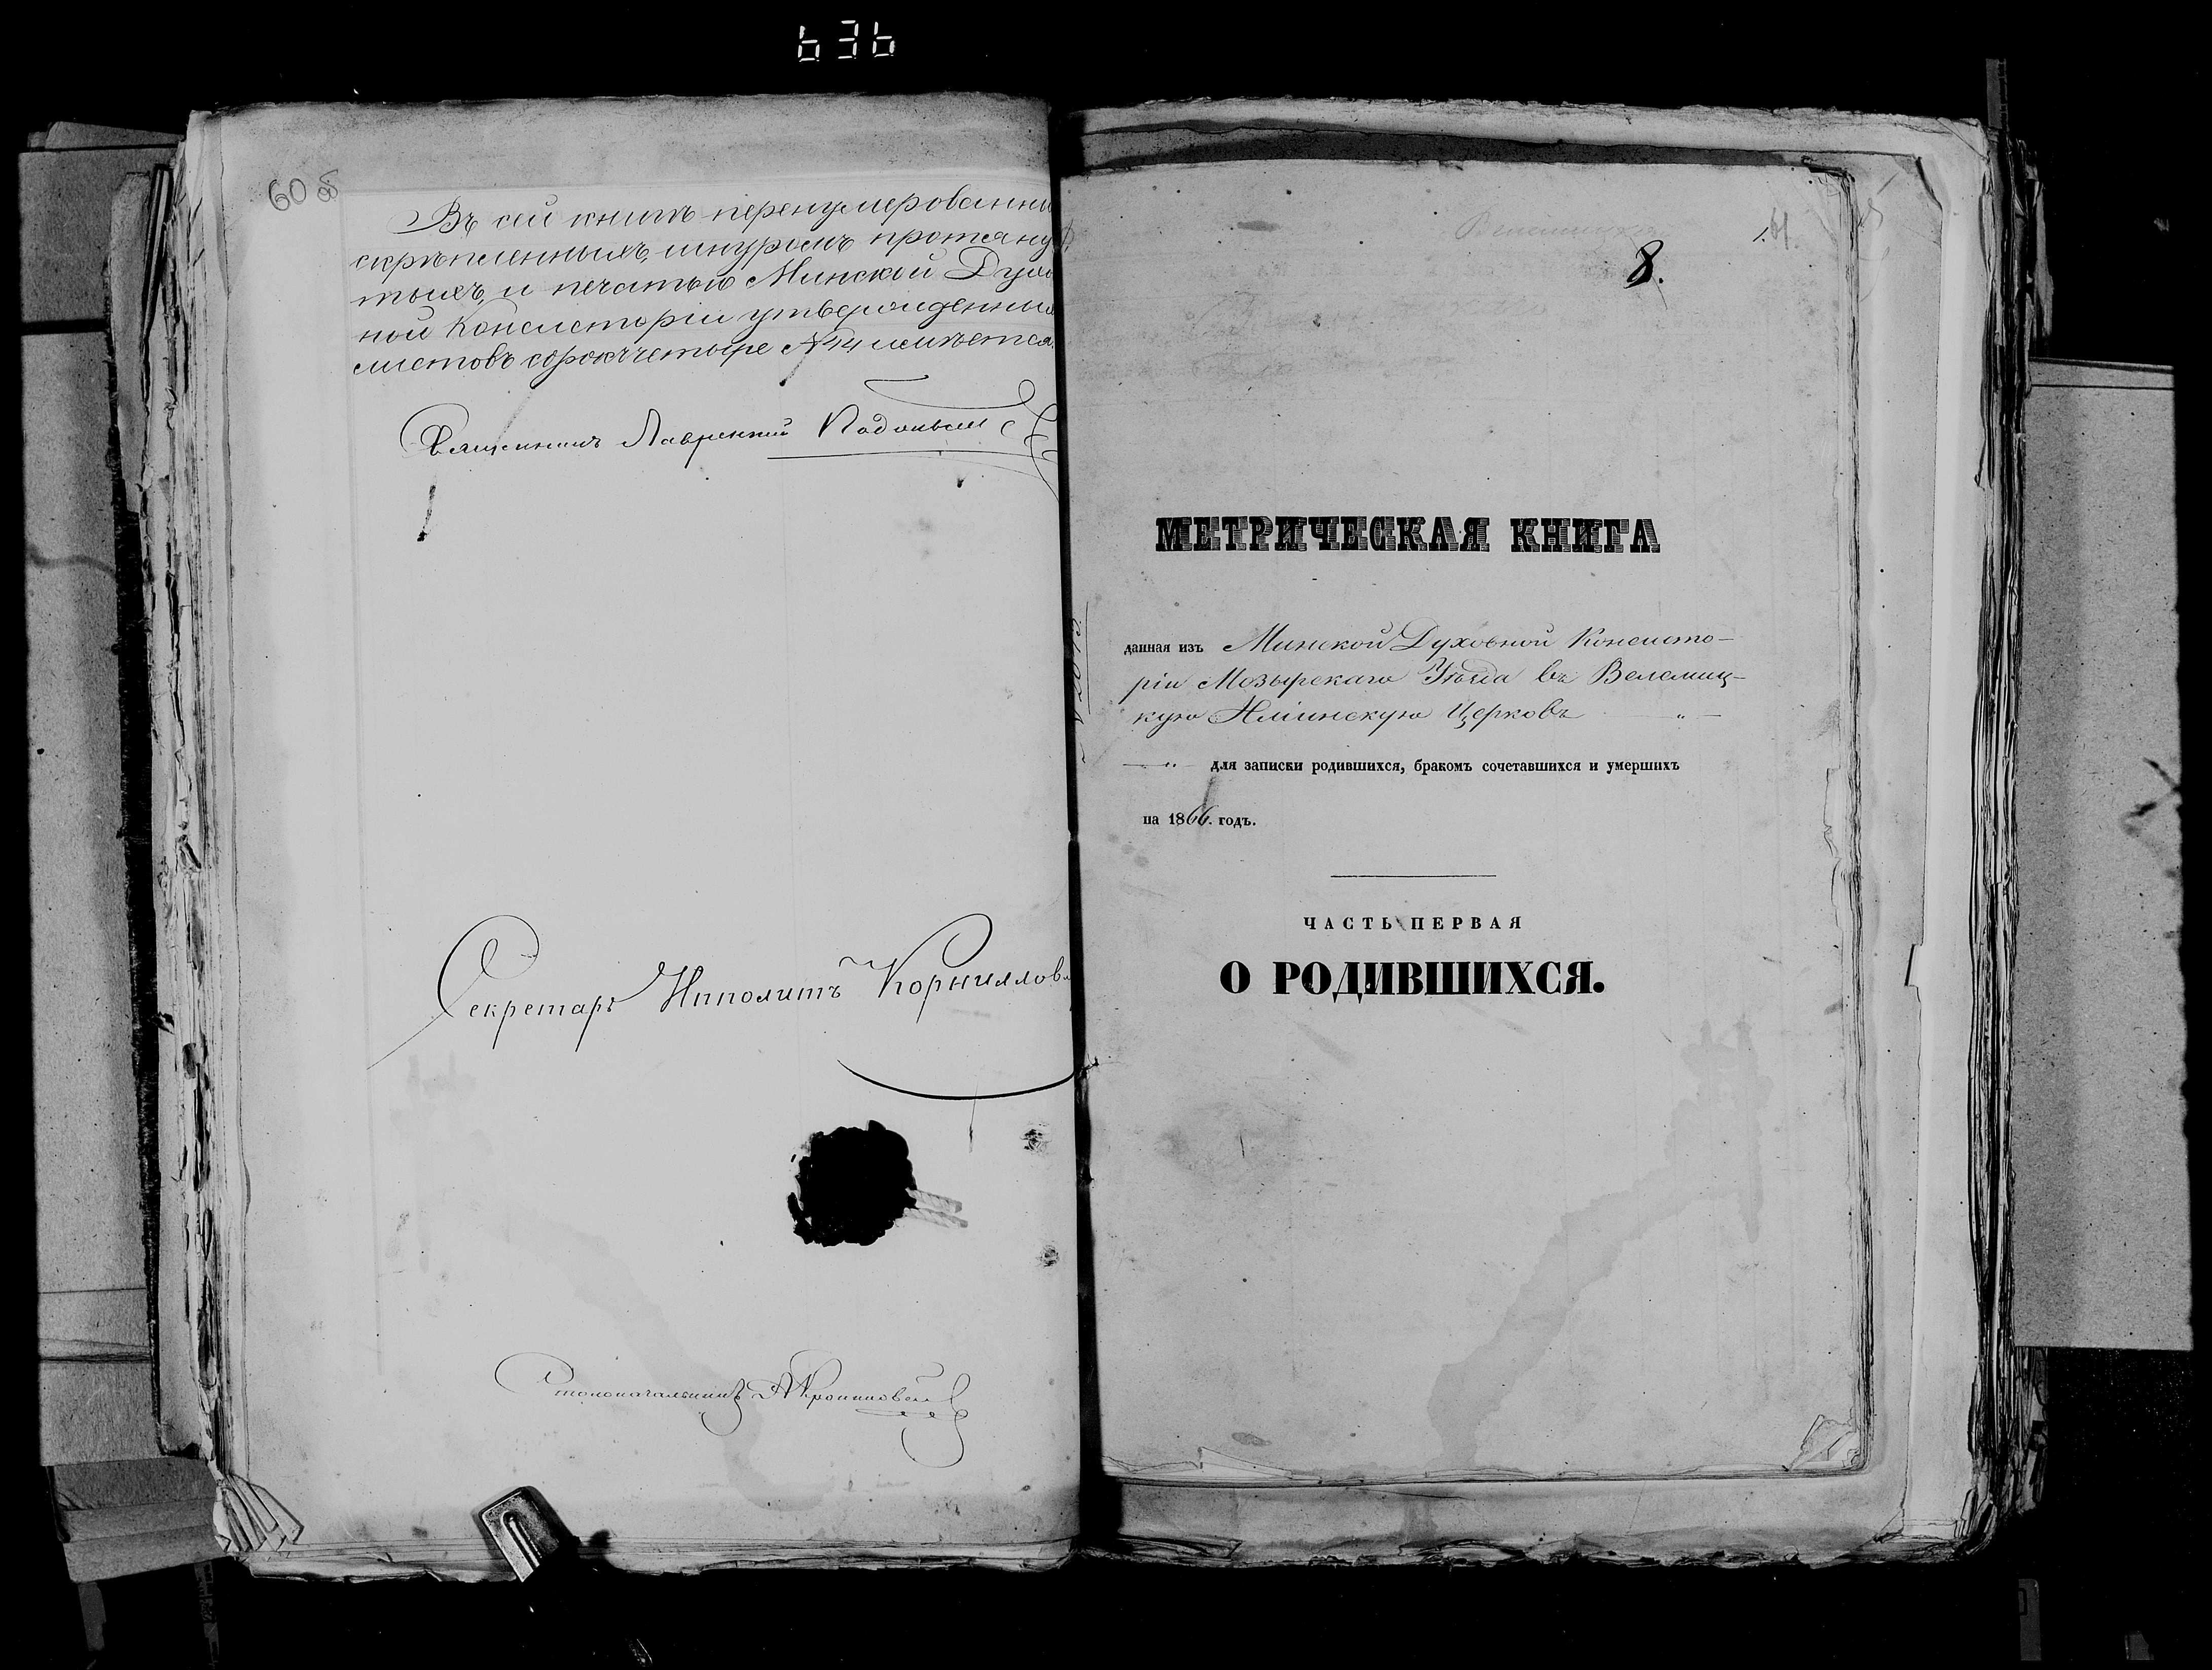 636
60 об
Въ сей книгѣ перенумерованны
скрѣпленныхъ, шнуромъ протяну
тыхъ, и печатью Минской Духо
ной Консисторіи утвержденны
листовъ сорокъ четыре № 44 имѣется.
Священникъ Лаврентій
Секретарь Ипполитъ Корниллов
Столоначальникъ
61.
8.
МЕТРИЧЕСКАЯ КНИГА
данная изъ Минской Духовной Консисто-
ріи Мозырскаго Уѣзда въ Велемиц-
кую Ильинскую Церковь
для записки родившихся, бракомъ сочетавшихся и умершихъ
на 1866. годъ.
ЧАСТЬ ПЕРВАЯ
О РОДИВШИХСЯ.